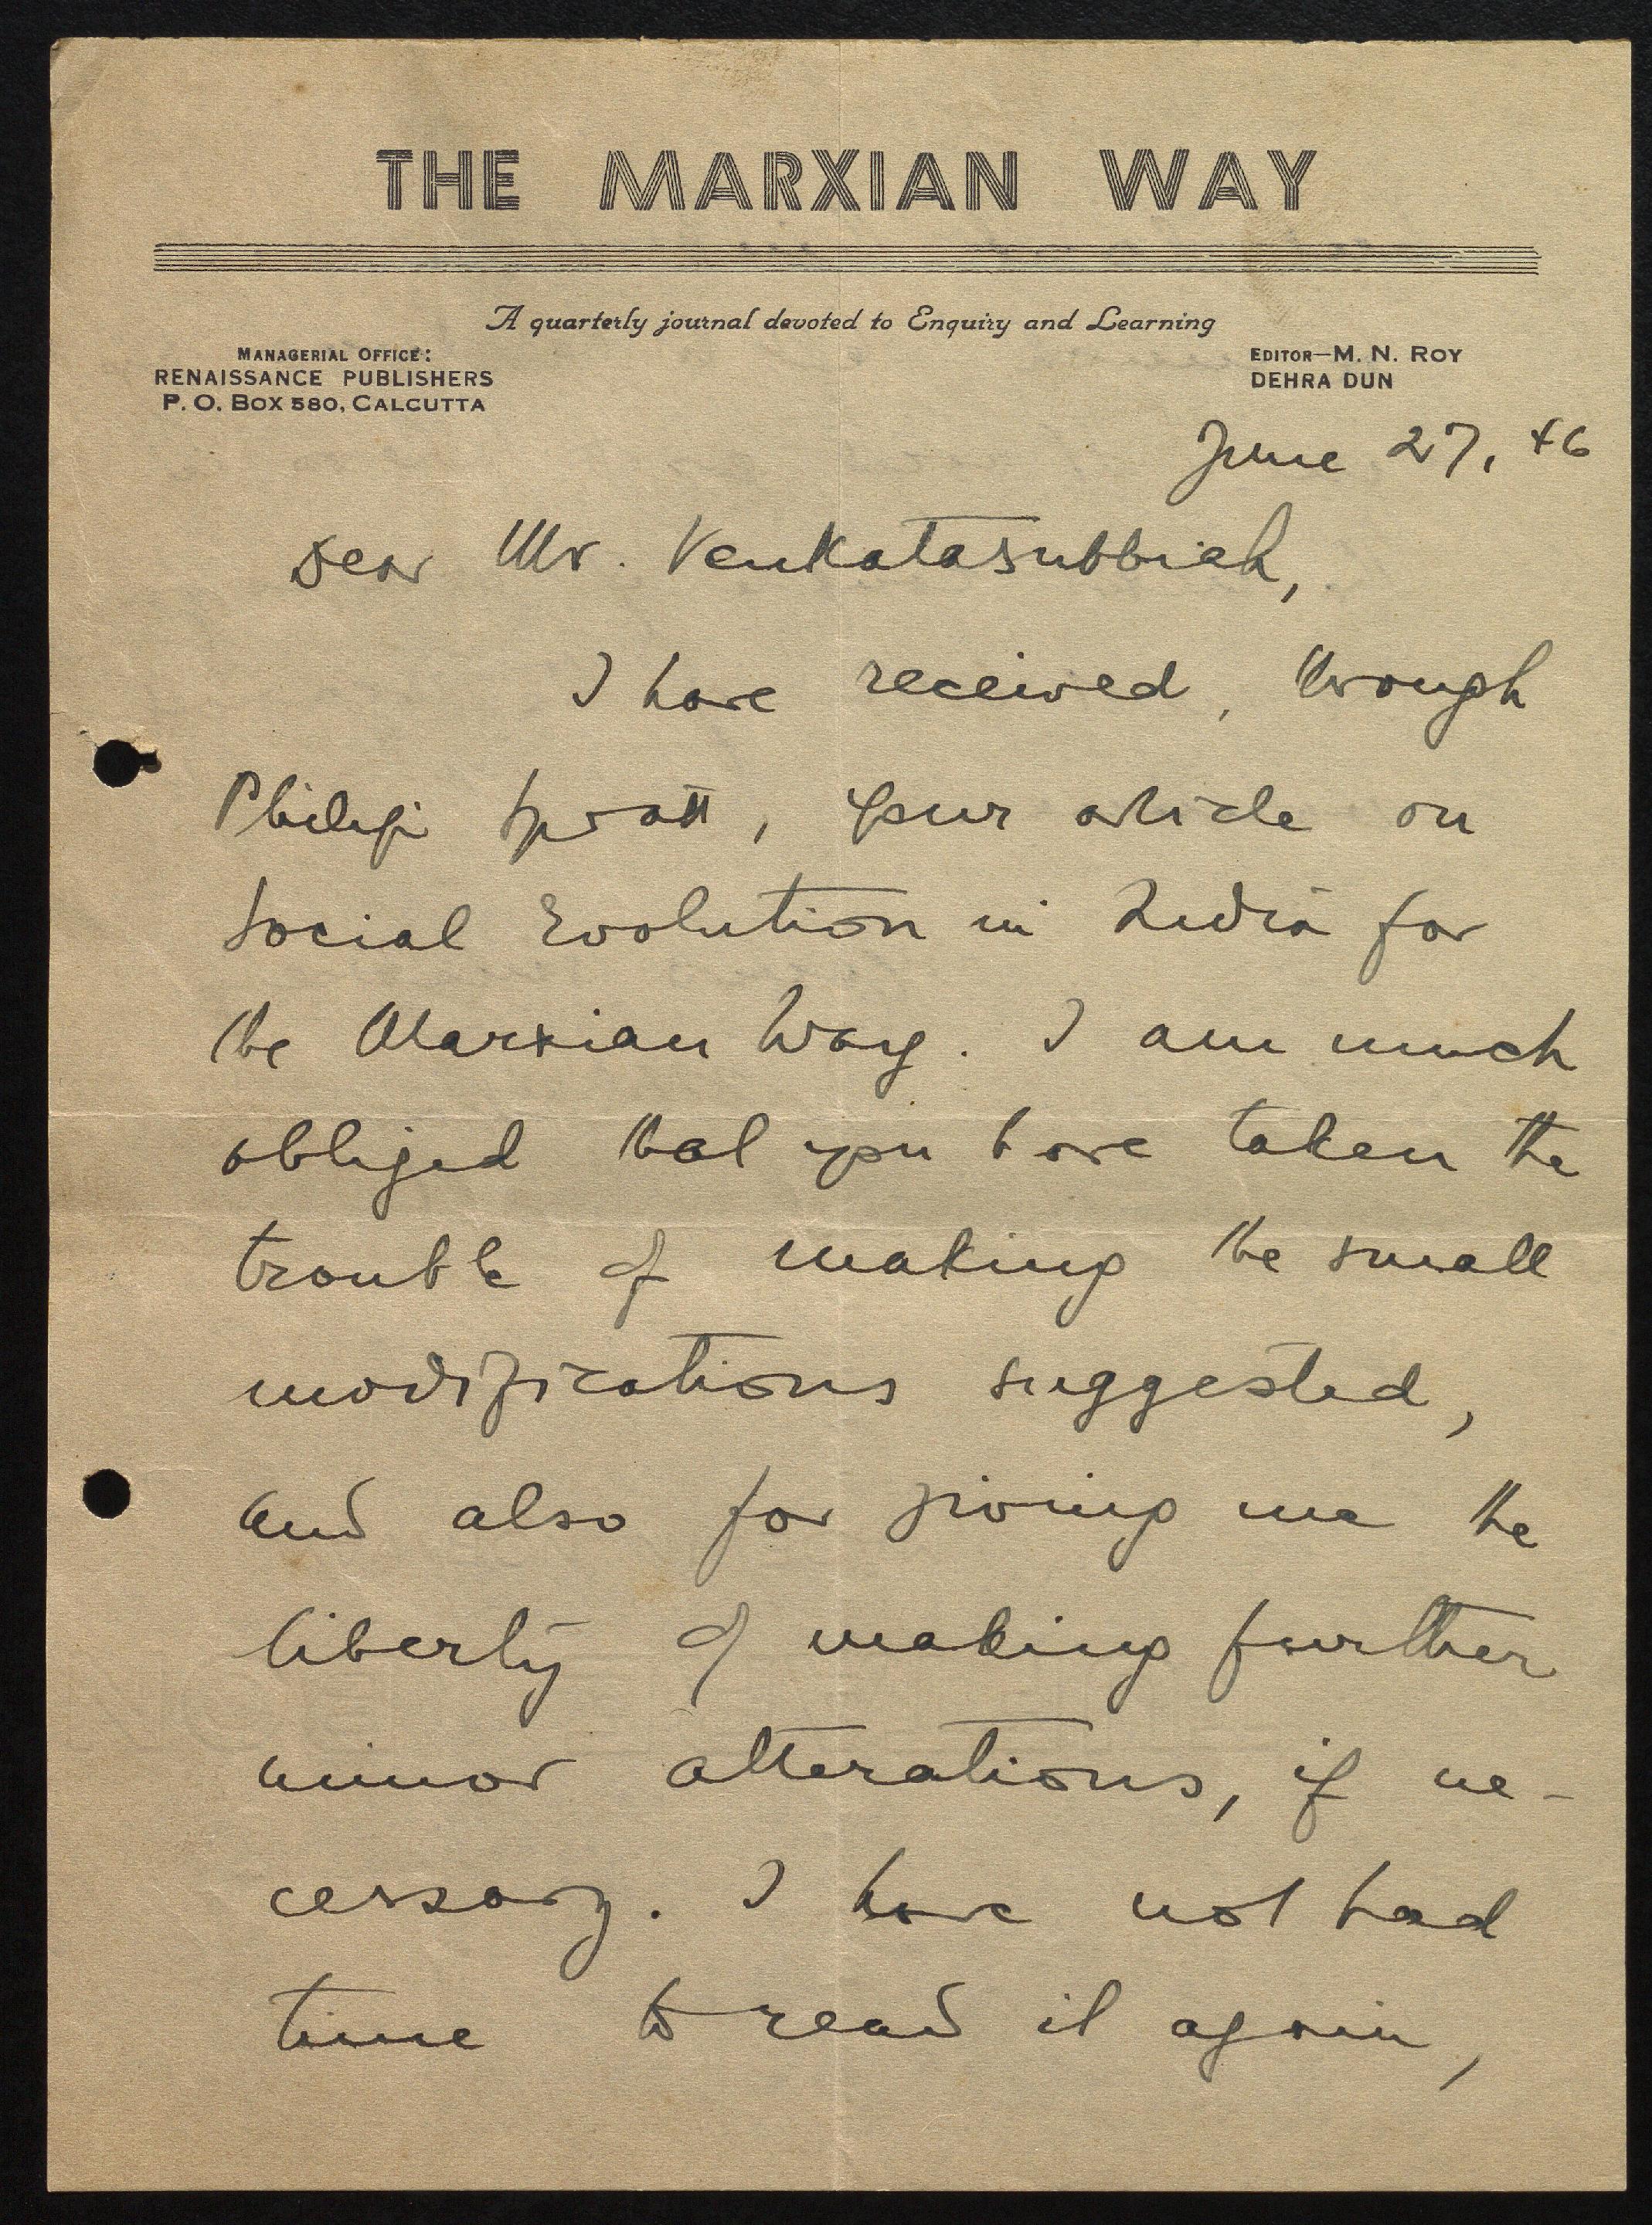 THE MARXIAN WAY
A quarterly journal devoted to Enquiry and Learning
MANAGERIAL OFFICE:
RENAISSANCE PUBLISHERS
P. O. BOX 580, CALCUTTA
EDITOR—M. N. ROY
DEHRA DUN
June 27, 46
Dear Mr. Venkatasubbiah,
I have received, through
Philip Spratt, your article on
Social Evolution in India for
the Marxian Way. I am much
obliged that you have taken the
trouble of making the small
modifications suggested,
and also for giving me the
liberty of making further
minor alterations, if ne-
cessary. I have not had
time to read it again,